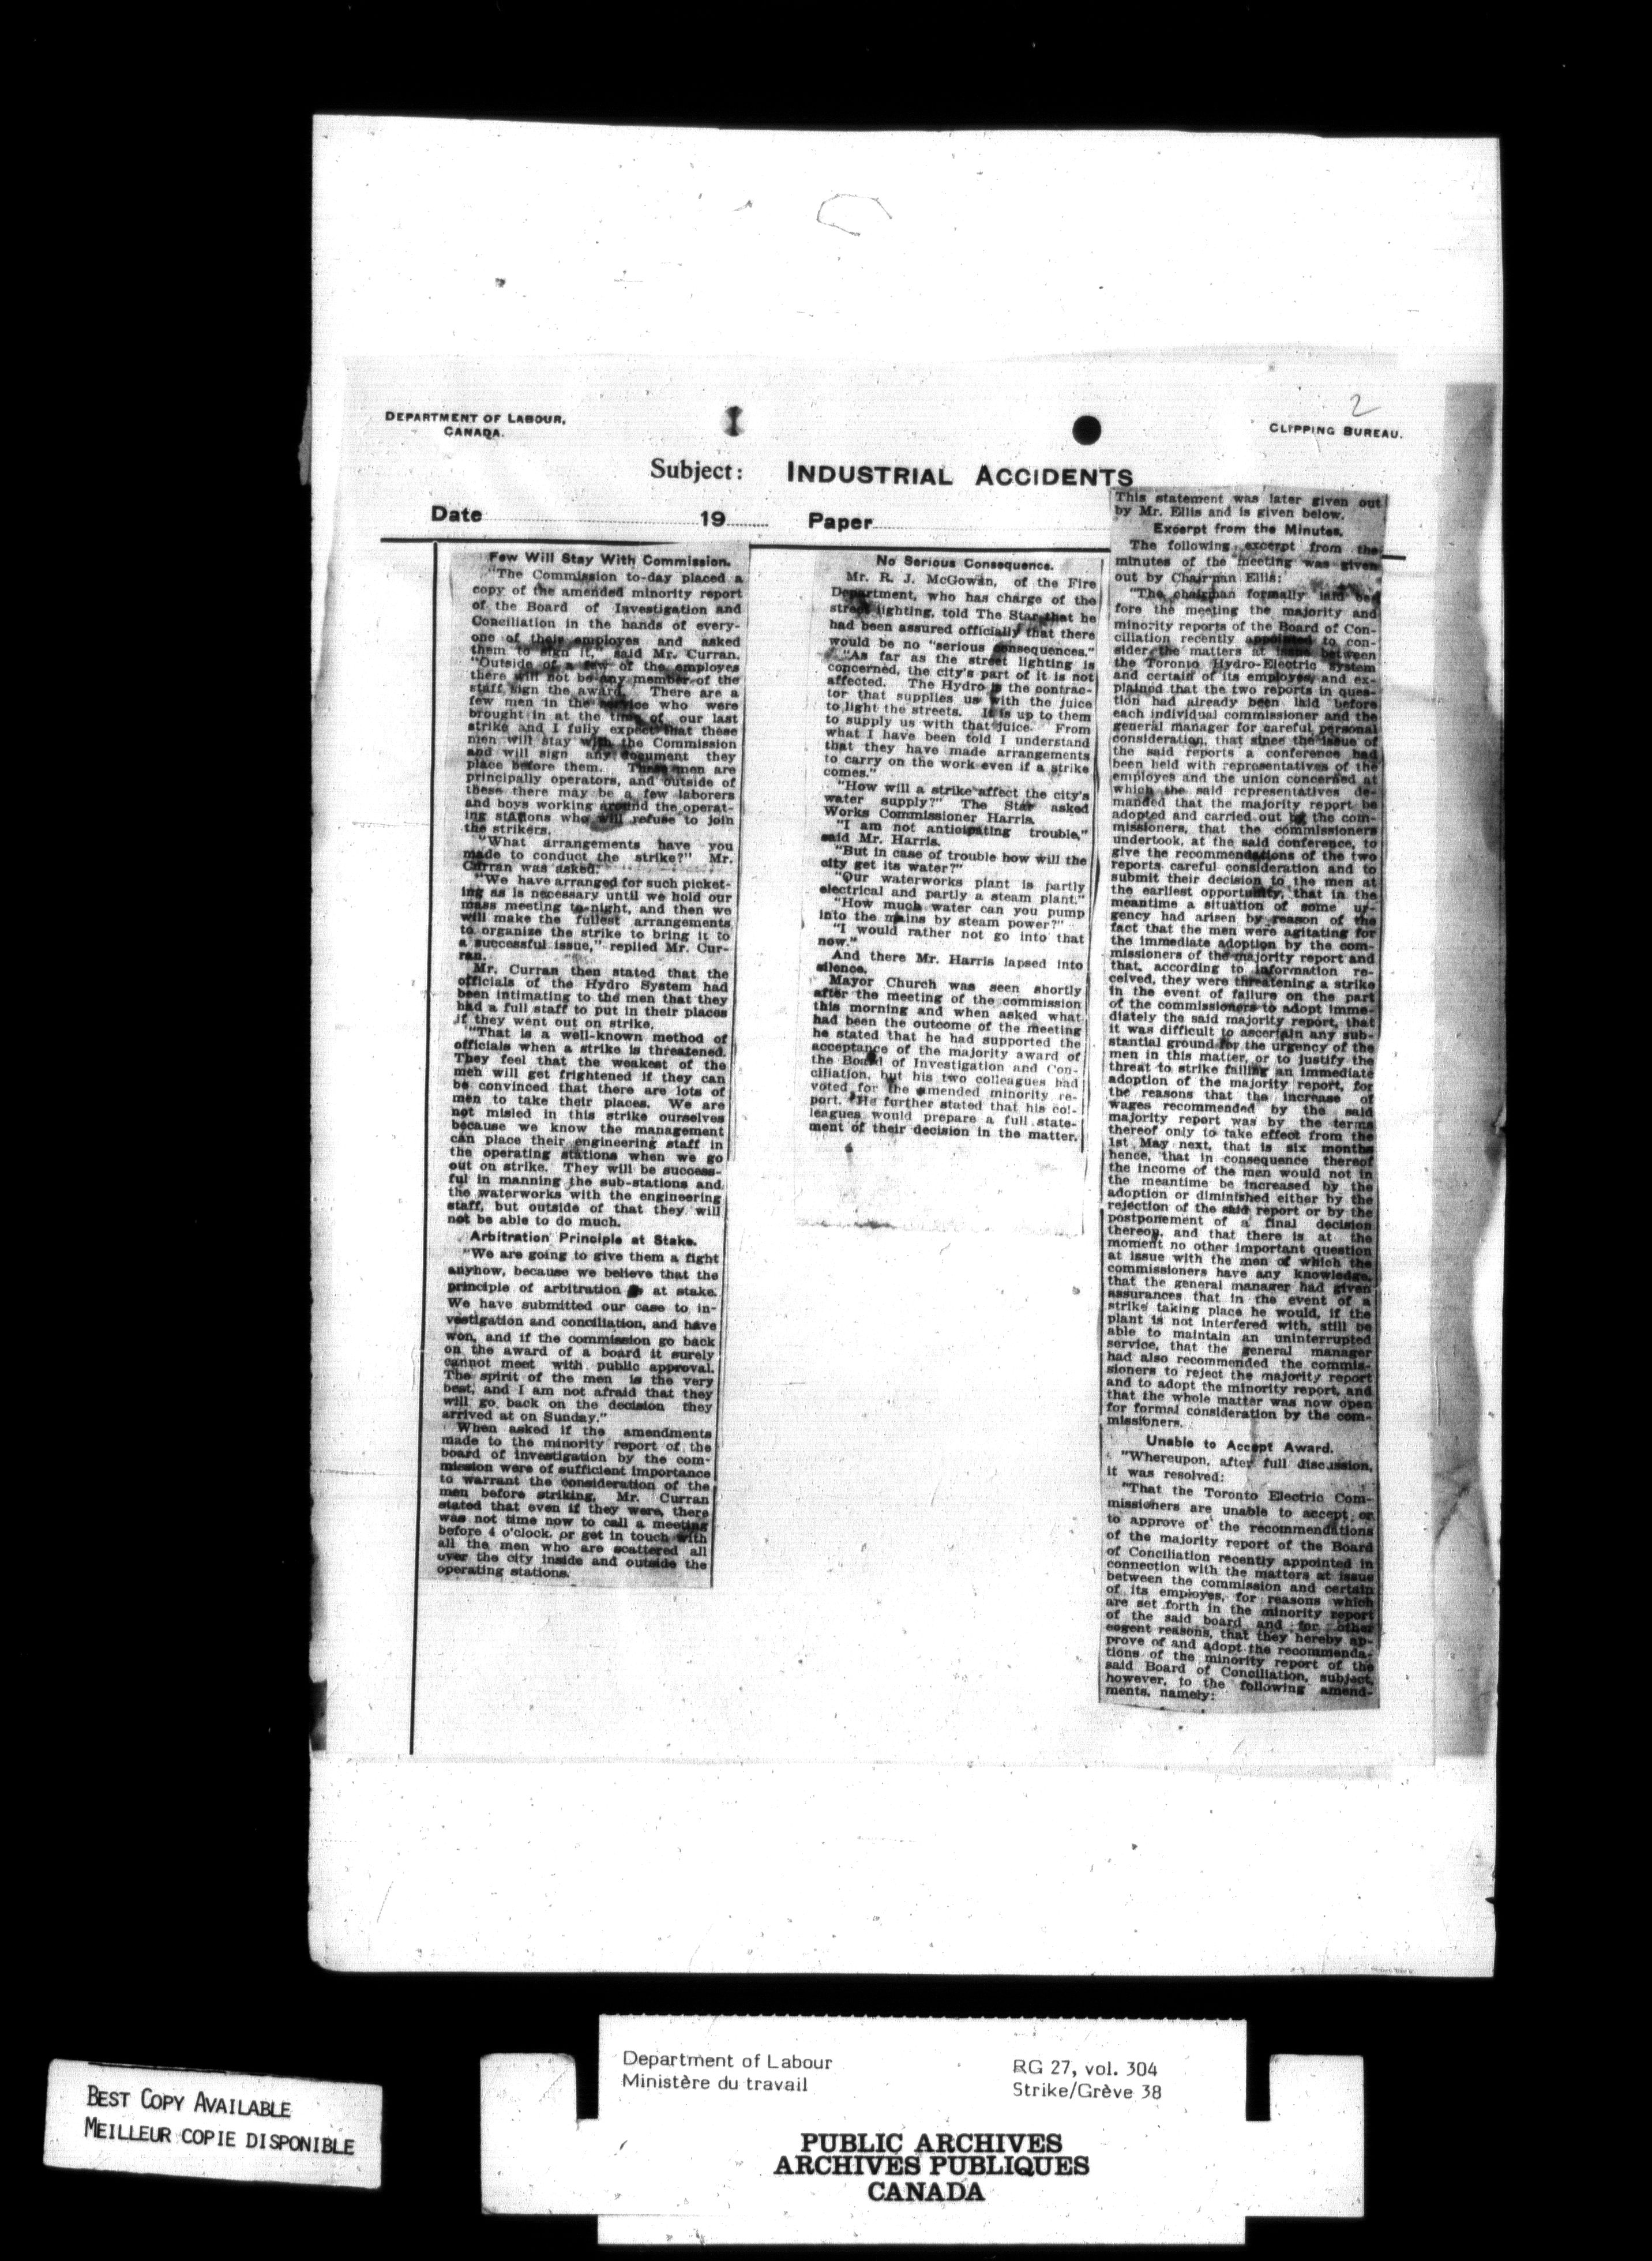 2
DEPARTMENT OF LABOUR,
CANADA.
CLIPPING BUREAU.
Subject: INDUSTRIAL ACCIDENTS
Date 19 Paper
Few Will Stay With Commission.
"The Commission to-day placed a
copy of the amended minority report
of the Board of Investigation and
Conciliation in the hands of every-
one of their employes and asked
them to sign it," said Mr. Curran.
"Outside of a few of the employes
there will not be any member of the
staff sign the award. There are a
few men in the service who were
brought in at the time of our last
strike and I fully expect that these
men will stay with the Commission
and will sign any document they
place before them. These men are
principally operators, and outside of
these there may be a few laborers
and boys working around the operat-
ing stations who will refuse to join
the strikers.
"What arrangements have you
made to conduct the strike?" Mr.
Curran was asked.
"We have arranged for such picket-
ing as is necessary until we hold our
mass meeting to-night, and then we
will make the fullest arrangements
to organize the strike to bring it to
a successful issue," replied Mr. Cur-
ran.
Mr. Curran then stated that the
officials of the Hydro System had
been intimating to the men that they
had a full staff to put in their places
if they went out on strike.
"That is a well-known method of
officials when a strike is threatened.
They feel that the weakest of the
men will get frightened if they can
be convinced that there are lots of
men to take their places. We are
not misled in this strike ourselves
because we know the management
can place their engineering staff in
the operating stations when we go
out on strike. They will be success-
ful in manning the sub-stations and
the waterworks with the engineering
staff, but outside of that they will
not be able to do much.
Arbitration Principle at Stake.
"We are going to give them a fight
anyhow, because we believe that the
principle of arbitration is at stake.
We have submitted our case to in-
vestigation and conciliation, and have
won, and if the commission go back
on the award of a board it surely
cannot meet with public approval.
The spirit of the men is the very
best, and I am not afraid that they
will go back on the decision they
arrived at on Sunday."
When asked if the amendments
made to the minority report of the
board of investigation by the com-
mission were of sufficient importance
to warrant the consideration of the
men before striking, Mr. Curran
stated that even if they were, there
was not time now to call a meeting
before 4 o'clock, or get in touch with
all the men who are scattered all
over the city inside and outside the
operating stations.
No Serious Consequence.
Mr. R. J. McGowan, of the Fire
Department, who has charge of the
street lighting, told The Star that he
had been assured officially that there
would be no "serious consequences."
"As far as the street lighting is
concerned, the city's part of it is not
affected. The Hydro is the contrac-
tor that supplies us with the juice
to light the streets. It is up to them
to supply us with that juice. From
what I have been told I understand
that they have made arrangements
to carry on the work even if a strike
comes."
"How will a strike affect the city's
water supply?" The Star asked
Works Commissioner Harris.
"I am not anticipating trouble,"
said Mr. Harris.
"But in case of trouble how will the
city get its water?"
"Our waterworks plant is partly
electrical and partly a steam plant."
"How much water can you pump
into the mains by steam power?"
"I would rather not go into that
now."
And there Mr. Harris lapsed into
silence.
Mayor Church was seen shortly
after the meeting of the commission
this morning and when asked what
had been the outcome of the meeting
he stated that he had supported the
acceptance of the majority award of
the Board of Investigation and Con-
ciliation, but his two colleagues had
voted for the amended minority re-
port. He further stated that his col-
leagues would prepare a full state-
ment of their decision in the matter.
This statement was later given out
by Mr. Ellis and is given below.
Excerpt from the Minutes.
The following excerpt from the
minutes of the meeting was given
out by Chairman Ellis:
"The chairman formally laid be-
fore the meeting the majority and
minority reports of the Board of Con-
ciliation recently appointed to con-
sider the matters at issue between
the Toronto Hydro-Electric System
and certain of its employes, and ex-
plained that the two reports in ques-
tion had already been laid before
each individual commissioner and the
general manager for careful personal
consideration, that since the issue of
the said reports a conference had
been held with representatives of the
employes and the union concerned at
which the said representatives de-
manded that the majority report be
adopted and carried out by the com-
missioners, that the commissioners
undertook, at the said conference, to
give the recommendations of the two
reports careful consideration and to
submit their decision to the men at
the earliest opportunity, that in the
meantime a situation of some ur-
gency had arisen by reason of the
fact that the men were agitating for
the immediate adoption by the com-
missioners of the majority report and
that, according to information re-
ceived, they were threatening a strike
in the event of failure on the part
of the commissioners to adopt imme-
diately the said majority report, that
it was difficult to ascertain any sub-
stantial ground for the urgency of the
men in this matter, or to justify the
threat to strike failing an immediate
adoption of the majority report, for
the reasons that the increase of
wages recommended by the said
majority report was by the terms
thereof only to take effect from the
1st May next, that is six months
hence, that in consequence thereof
the income of the men would not in
the meantime be increased by the
adoption or diminished either by the
rejection of the said report or by the
postponement of a final decision
thereon, and that there is at the
moment no other important question
at issue with the men of which the
commissioners have any knowledge,
that the general manager had given
assurances that in the event of a
strike taking place he would, if the
plant is not interfered with, still be
able to maintain an uninterrupted
service, that the general manager
had also recommended the commis-
sioners to reject the majority report
and to adopt the minority report, and
that the whole matter was now open
for formal consideration by the com-
missioners.
Unable to Accept Award.
"Whereupon, after full discussion,
it was resolved:
"That the Toronto Electric Com-
missioners are unable to accept or
to approve of the recommendations
of the majority report of the Board
of Conciliation recently appointed in
connection with the matters at issue
between the commission and certain
of its employes, for reasons which
are set forth in the minority report
of the said board and for other
cogent reasons, that they hereby ap-
prove of and adopt the recommenda-
tions of the minority report of the
said Board of Conciliation, subject,
however, to the following amend-
ments, namely:
BEST COPY AVAILABLE
MEILLEUR COPIE DISPONIBLE
Department of Labour
Ministère du travail
RG 27, vol. 304
Strike/Grève 38
PUBLIC ARCHIVES
ARCHIVES PUBLIQUES
CANADA